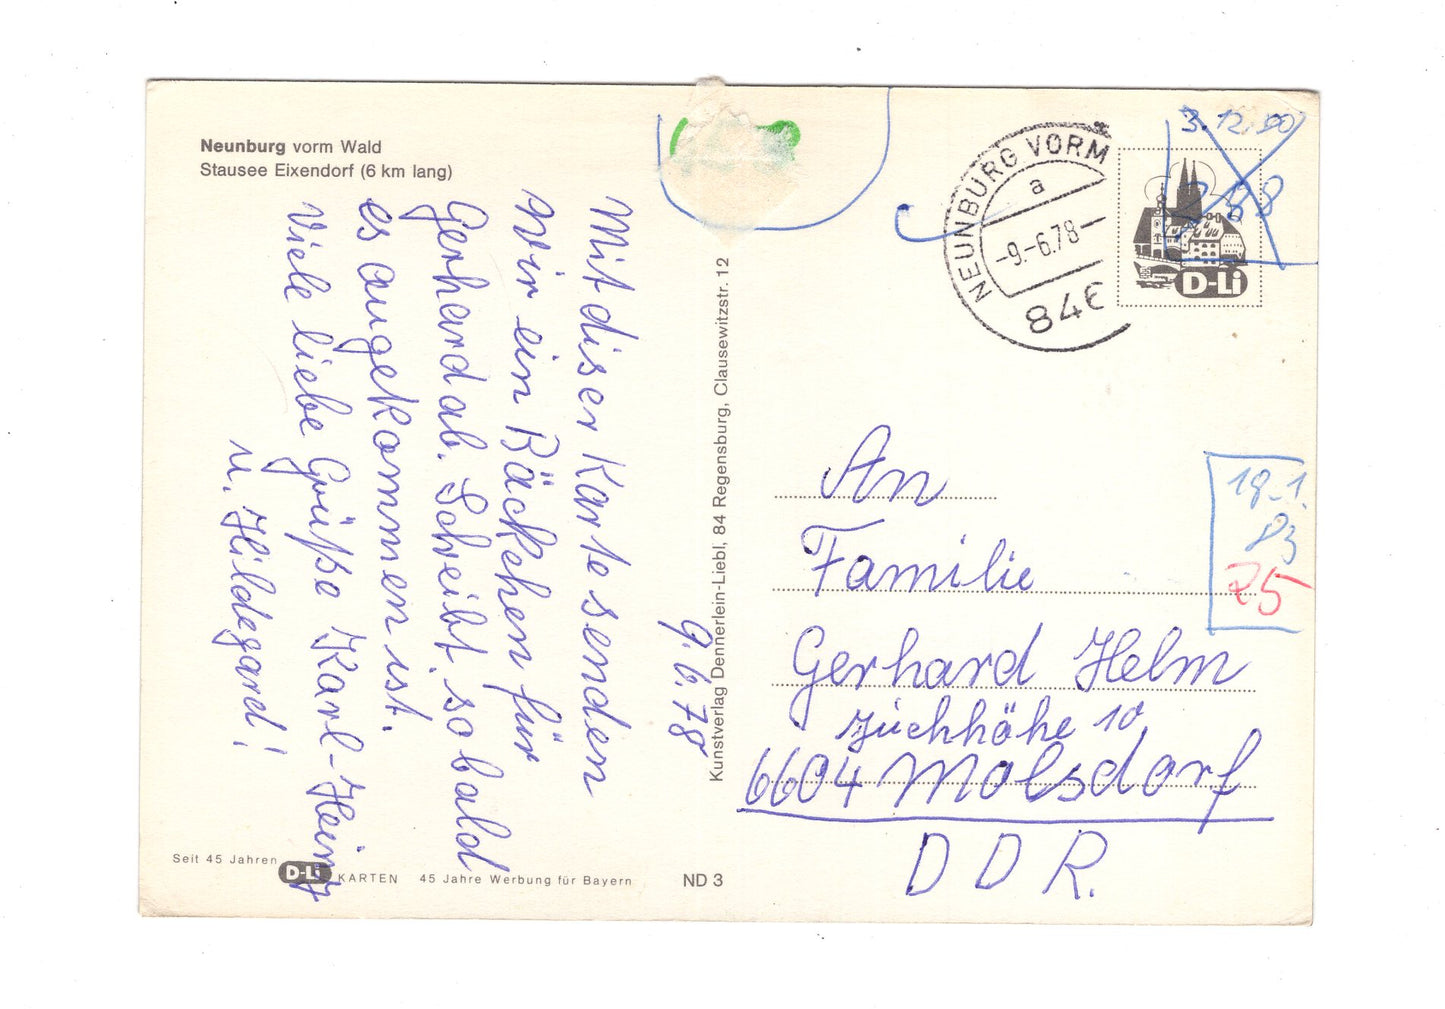 Neunburg vorm Wald
Stausee Eixendorf (6 km lang)
9.6.78
Mit diser Karte senden
wir ein Päckchen für
Gerhard ab. Schreibt, sobald
es angekommen ist.
Viele liebe Grüße Karl-Heinz
u. Hildegard!
Kunstverlag Dennerlein-Liebl, 84 Regensburg, Clausewitzstr. 12
Seit 45 Jahren D-Li KARTEN 45 Jahre Werbung für Bayern
ND 3
NEUNBURG VORM
a
-9.-6.78-
846
3.12.90
D-Li
18.1.
83
25
An
Familie
Gerhard Helm
10
6604 Molsdorf
DDR.